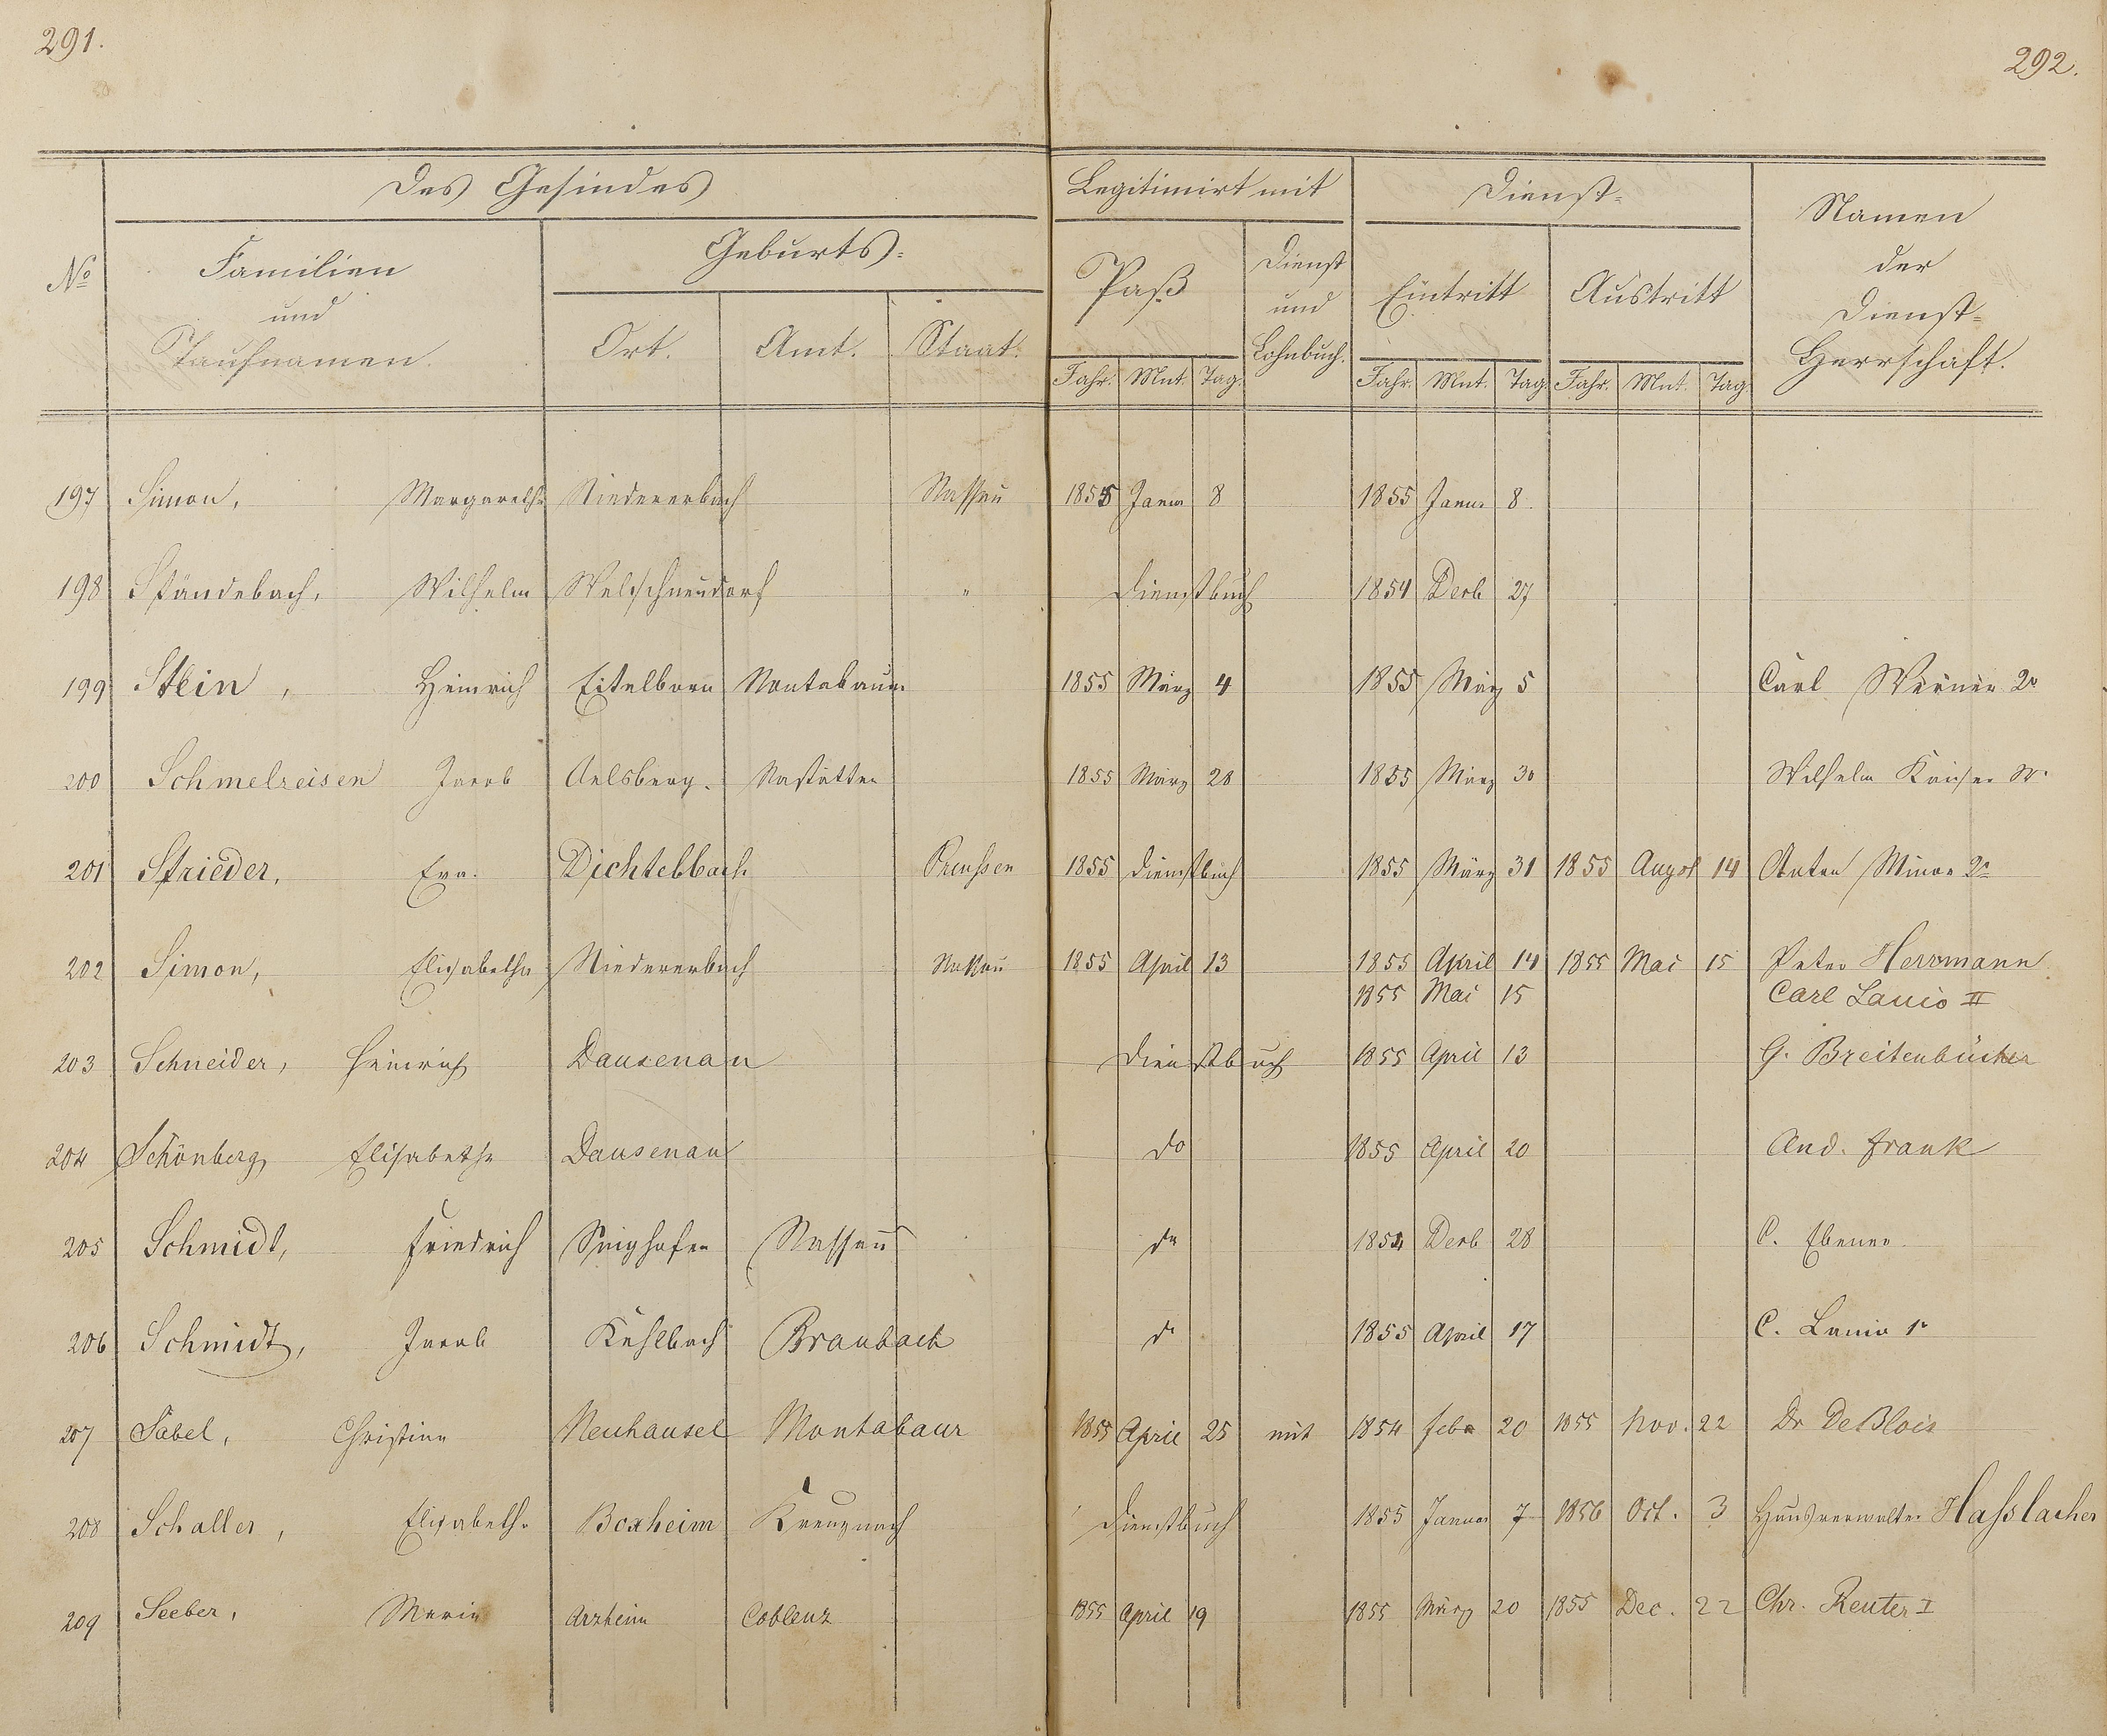 291.
292.
Des Gesindes
Legitimirt mit
Dienst-
Namen der Dienst-Herrschaft.
No
Familien und Taufnamen.
Geburts-
Paß
Dienst und Lohnbuch.
Eintritt
Austritt
Ort. Amt. Staat.
Jahr. Mnt. Tag. Jahr. Mnt. Tag. Jahr. Mnt. Tag.
197 Simon, Margarethe Niedererbach Nassau 1855 Janur 8 1855 Janur 8.
198 Wilhelm Welschneudorf " Dienstbuch 1854 Decb 27
199 Stein, Heinrich Eitelborn Montabaur 1855 März 4 1855 März 5 Carl Werner 2r
200 Schmelzeisen Jacob Aelsberg. Nastätten 1855 März 28 1855 März 30 Wilhelm Kaiser
201 Strieder, Eva. Dichtelbach Preußen 1855 Dienstbuch 1855 März 31 1855 Augst 14 Anton Minor 2r
202 Simon, Elisabetha Niedererbach Nassau 1855 April 13 1855 April 14 1855 Mai 15 Peter Herrmann
1855 Mai 15 Carl Lanio II
203 Schneider, Heinrich Dausenau Dienstbuch 1855 April 13 G. Breitenbücher
204 Schönberg, Elisabethe Dausenau do 1855 April 20 And. Frank
205 Schmidt, Friedrich Singhofen Nassau do 1854 Decb 28 C. Ebener.
206 Schmidt, Jacob Kehlbach Braubach do 1855 April 17 C. Lanio 1r
207 Sabel, Christine Neuhäusel Montabaur 1855 April 25 mit 1854 Febr 20 1855 Nov. 22 Dr De Blois
208 Schaller, Elisabethe Boxheim Kreuznach Dienstbuch 1855 Januar 7 1856 Oct. 3 Hausverwalter Haßlacher
209 Seeber, Marie Arzheim Coblenz 1855 April 19 1855 März 20 1855 Dec. 22 Chr. Reuter I